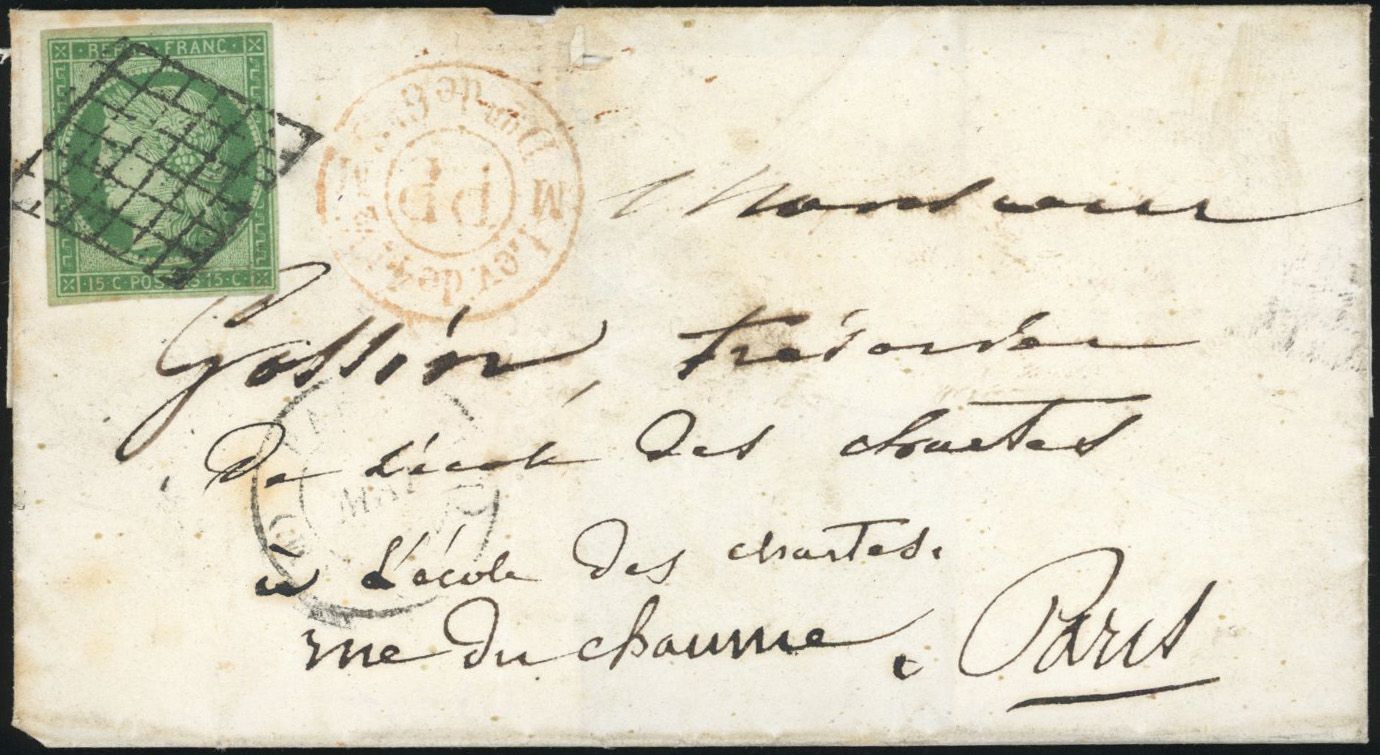 REP FRANC
15·C·POS 15·C·
PP
Lev. de
M
Monsieur
Gossin, trésorier
De L'école des chartes
à L'école des chartes.
rue du chaume, Paris